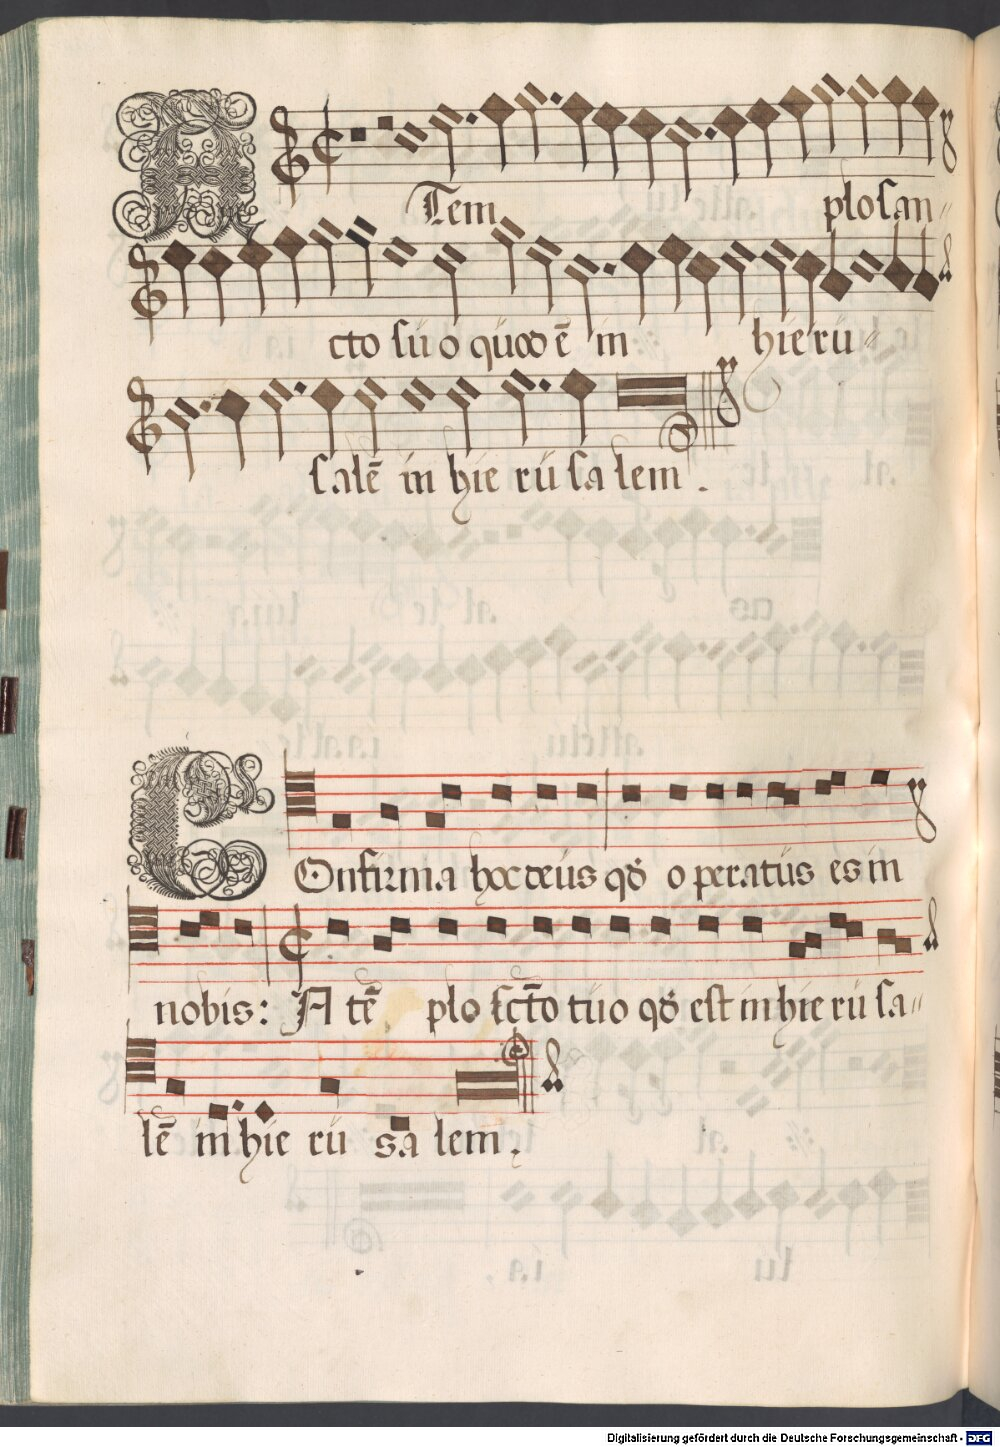 A Tem plo san-
cto sŭ o qŭod ē in hie rŭ-
salē in hie rŭ sa lem.
COnfirma hoc deŭs qđ o peratŭs es in
nobis: A tē plo sctō tŭo qđ est in hie rŭ sa-
lē in hie rŭ sa lem.
Digitalisierung gefördert durch die Deutsche Forschungsgemeinschaft - DFG